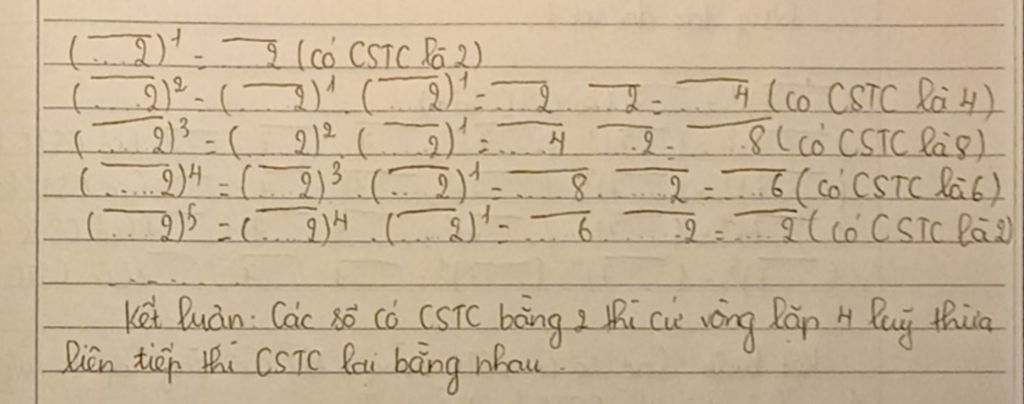 (‾...2)¹ = ‾...2 (có CSTC là 2)
(‾...2)² = (‾...2)¹ . (‾...2)¹ = ‾...2 . ‾...2 = ‾...4 (có CSTC là 4)
(‾...2)³ = (‾...2)² . (‾...2)¹ = ‾...4 . ‾...2 = ‾...8 (có CSTC là 8)
(‾...2)⁴ = (‾...2)³ . (‾...2)¹ = ‾...8 . ‾...2 = ‾...6 (có CSTC là 6)
(‾...2)⁵ = (‾...2)⁴ . (‾...2)¹ = ‾...6 . ‾...2 = ‾...2 (có CSTC là 2)
........
Kết luận: Các số có CSTC bằng 2 thì cứ vòng lặp 4 luỹ thừa
liên tiếp thì CSTC lại bằng nhau.